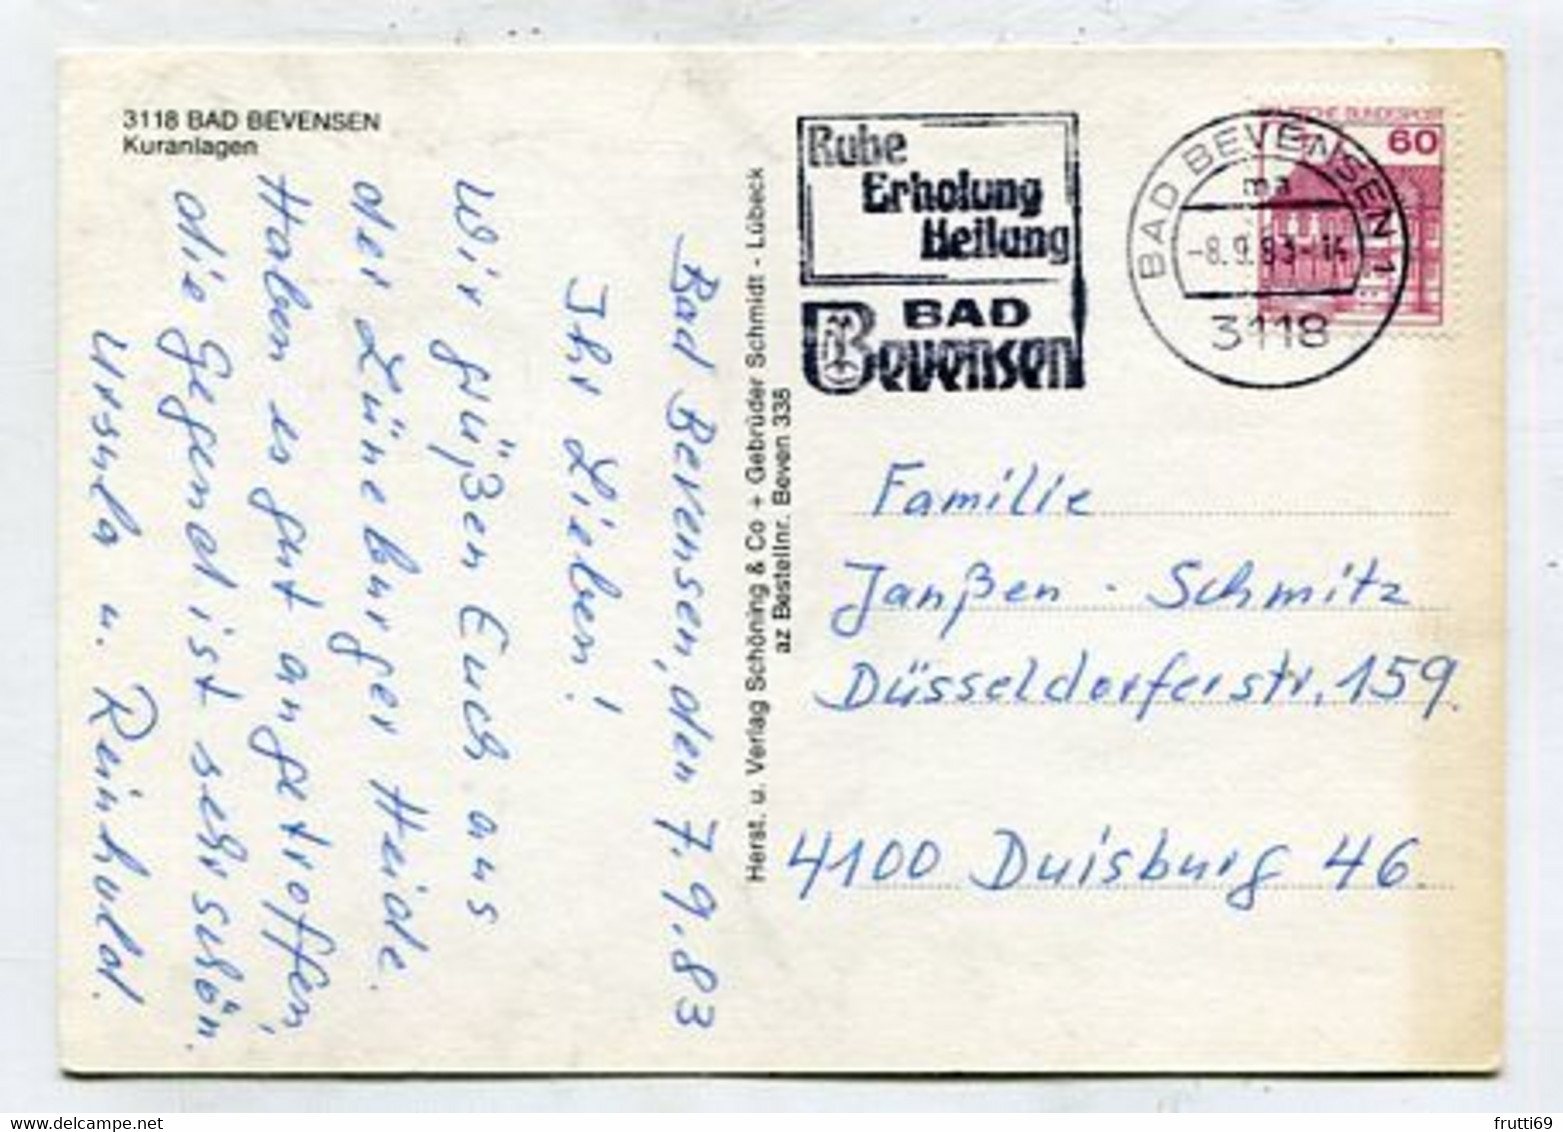 3118 BAD BEVENSEN
Kuranlagen
Bad Bevensen, den 7.9.83
Ihr Lieben!
Wir grüßen Euch aus
der Lüneburger Heide.
Haben es gut angetroffen,
die Gegend ist sehr schön.
Ursula u. Reinhold.
Herst. u. Verlag Schöning & Co + Gebrüder Schmidt - Lübeck
az Bestellnr. Beven 336
Ruhe
Erholung
Heilung
BAD
Bevensen
BAD BEVENSEN 1
ma
-8.9.83-14
3118
DEUTSCHE BUNDESPOST
60
Familie
Janßen - Schmitz
Düsseldorferstr. 159.
4100 Duisburg 46.
frutti69